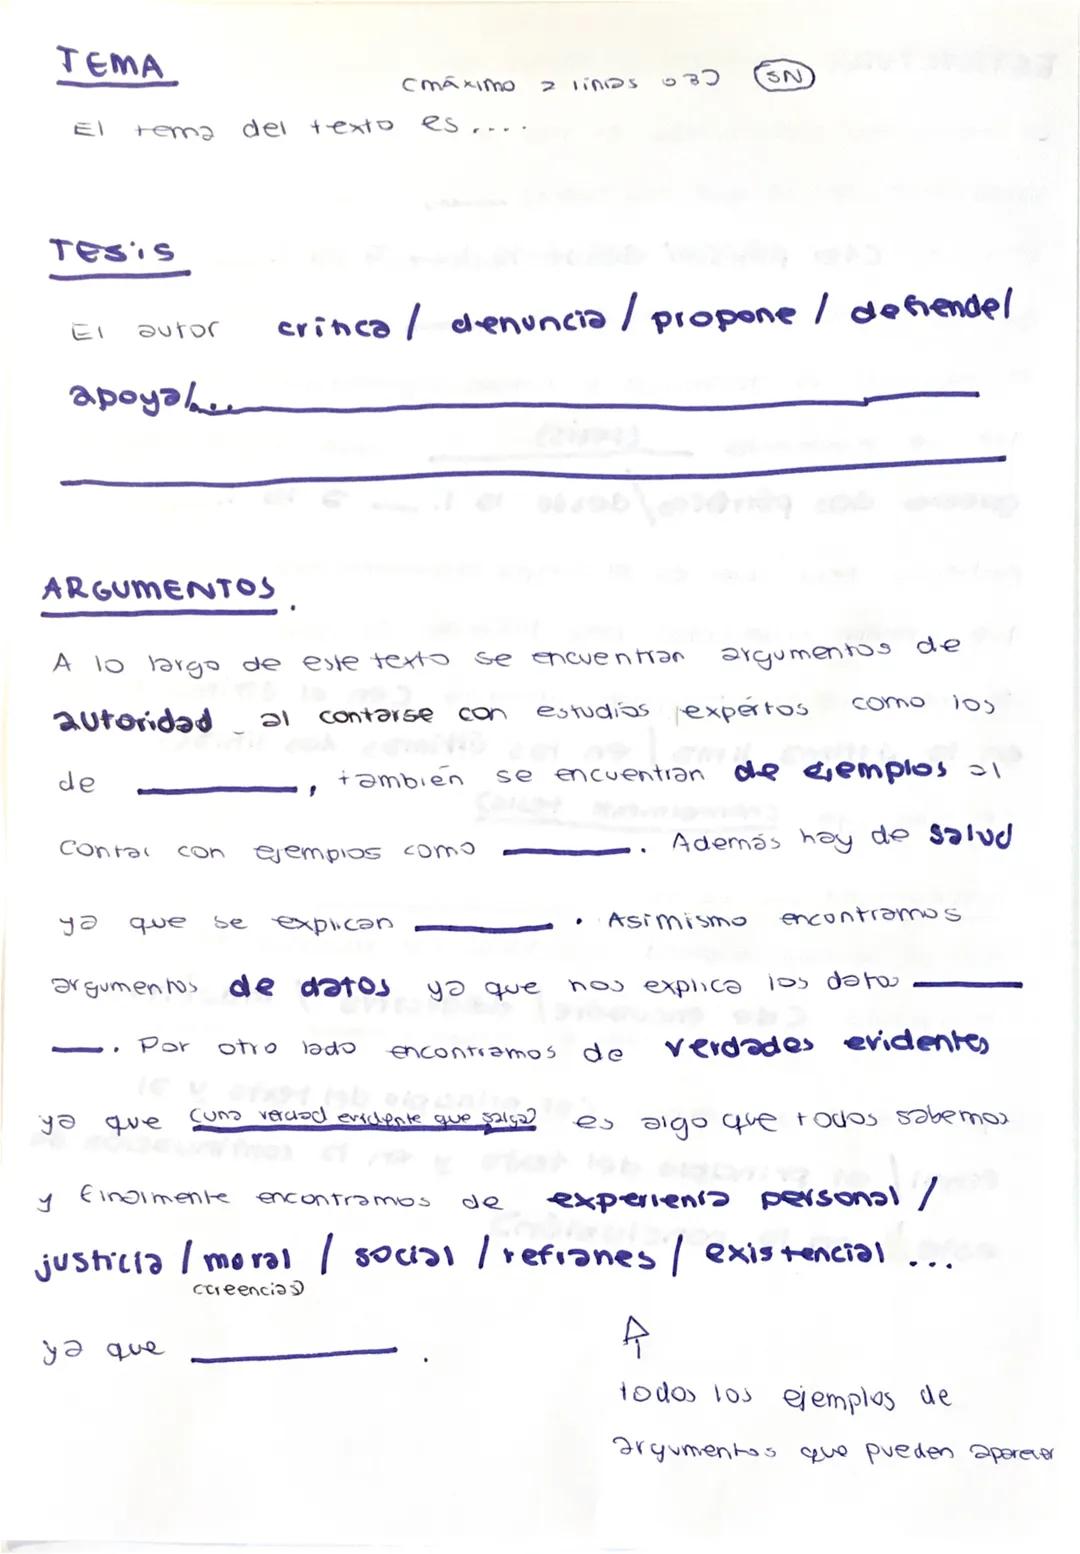 TEMA
(máximo 2 líneas o 3) (SN)
El tema del texto es....
TESIS
El autor critica / denuncia / propone / defiende/
apoya/...
ARGUMENTOS.
A lo largo de este texto se encuentran argumentos de
autoridad al contarse con estudios expertos como los
de ______, también se encuentran de ejemplos al
contar con ejemplos como ______. Además hay de salud
ya que se explican ______. Asimismo encontramos
argumentos de datos ya que nos explica los datos ______
___. Por otro lado encontramos de verdades evidentes
ya que (una verdad evidente que salga) es algo que todos sabemos
y finalmente encontramos de experiencia personal /
justicia / moral / social / refranes / existencial ...
(creencias)
ya que ______.
todos los ejemplos de
argumentos que pueden aparecer